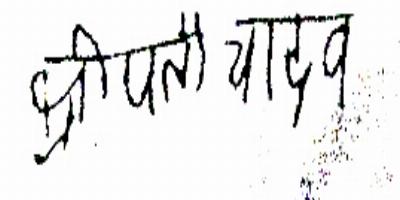 श्रीपती यादव